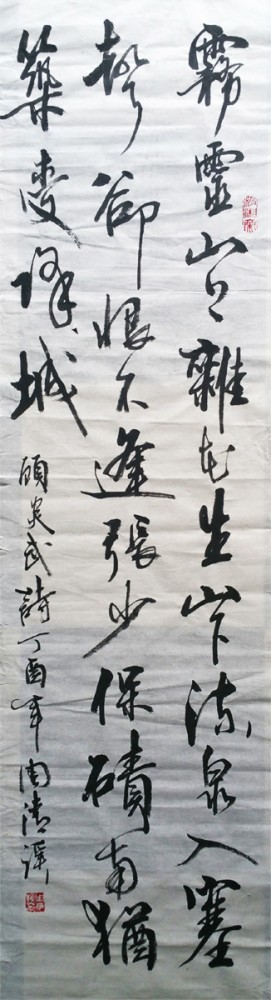 霧靈山上雜花生山下流泉入塞
聲卻恨不逢張少保磧南猶
築受降城
顧炎武詩丁酉年周清